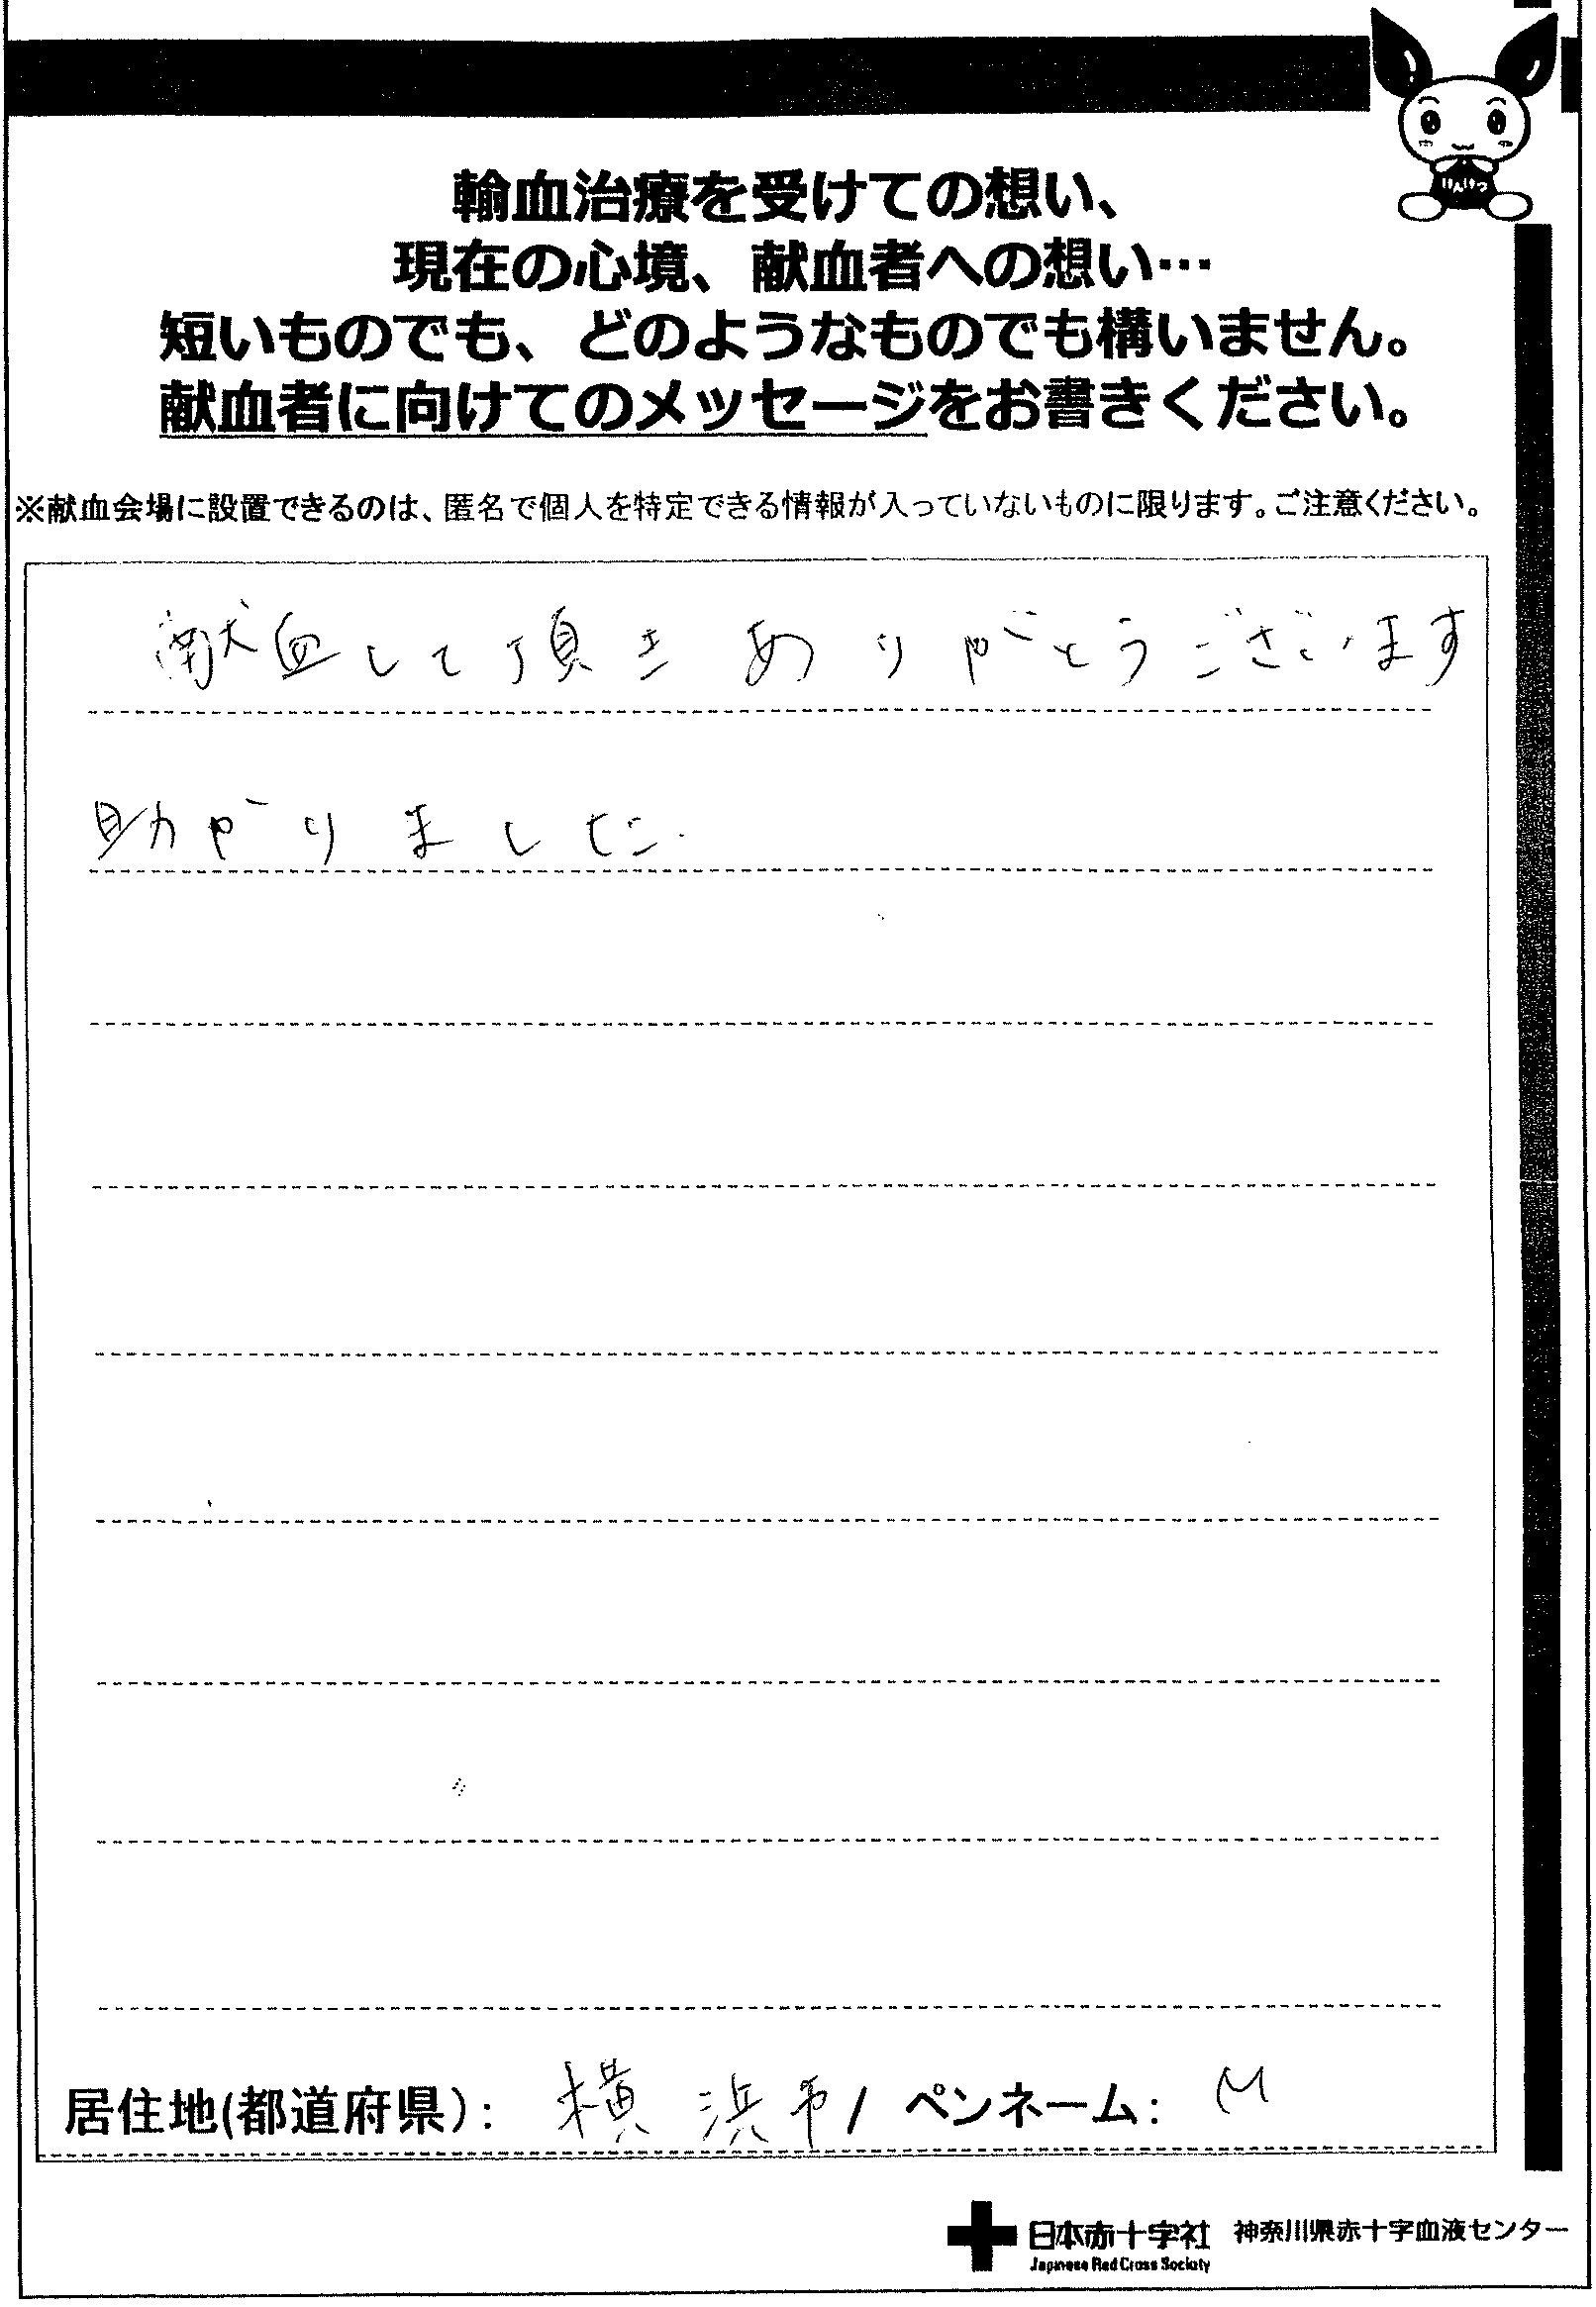 けんけつ
輸血治療を受けての想い、
現在の心境、献血者への想い…
短いものでも、どのようなものでも構いません。
献血者に向けてのメッセージをお書きください。
※献血会場に設置できるのは、匿名で個人を特定できる情報が入っていないものに限ります。ご注意ください。
献血して頂きありがとうございます
助かりました.
居住地(都道府県): 横浜市/ ペンネーム: M
日本赤十字社 神奈川県赤十字血液センター
Japanese Red Cross Society